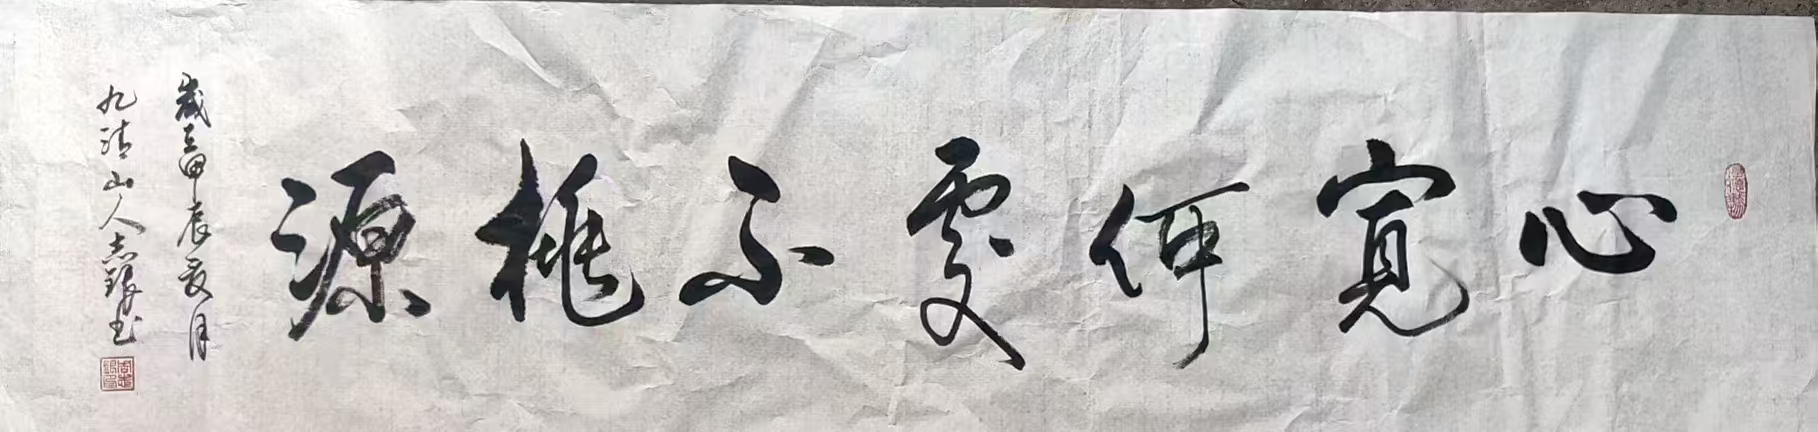 心寬何處不桃源
歲在甲辰夏月
九清山人志銀书